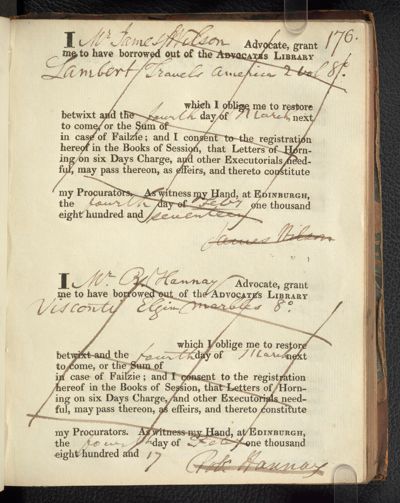 176.
I Mr. James Wilson Advocate, grant
me to have borrowed out of the ADVOCATES LIBRARY
Lambert Travels America 2 vol 8o.
which I oblige me to restore
betwixt and the fourth day of March next
to come, or the Sum of
in case of Failzie; and I consent to the registration
hereof in the Books of Session, that Letters of Horn-
ing on six Days Charge, and other Executorials need-
ful, may pass thereon, as effeirs, and thereto constitute
my Procurators. As witness my Hand, at EDINBURGH,
the fourth day of Feby one thousand
eight hundred and seventeen
James Wilson
I Mr. R. Hannay Advocate, grant
me to have borrowed out of the ADVOCATES LIBRARY
Visconti Elgin Marbles 8o
which I oblige me to restore
betwixt and the fourth day of March next
to come, or the Sum of
in case of Failzie; and I consent to the registration
hereof in the Books of Session, that Letters of Horn-
ing on six Days Charge, and other Executorials need-
ful, may pass thereon, as effeirs, and thereto constitute
my Procurators. As witness my Hand, at EDINBURGH,
the fourth day of Feby one thousand
eight hundred and 17
Hannay